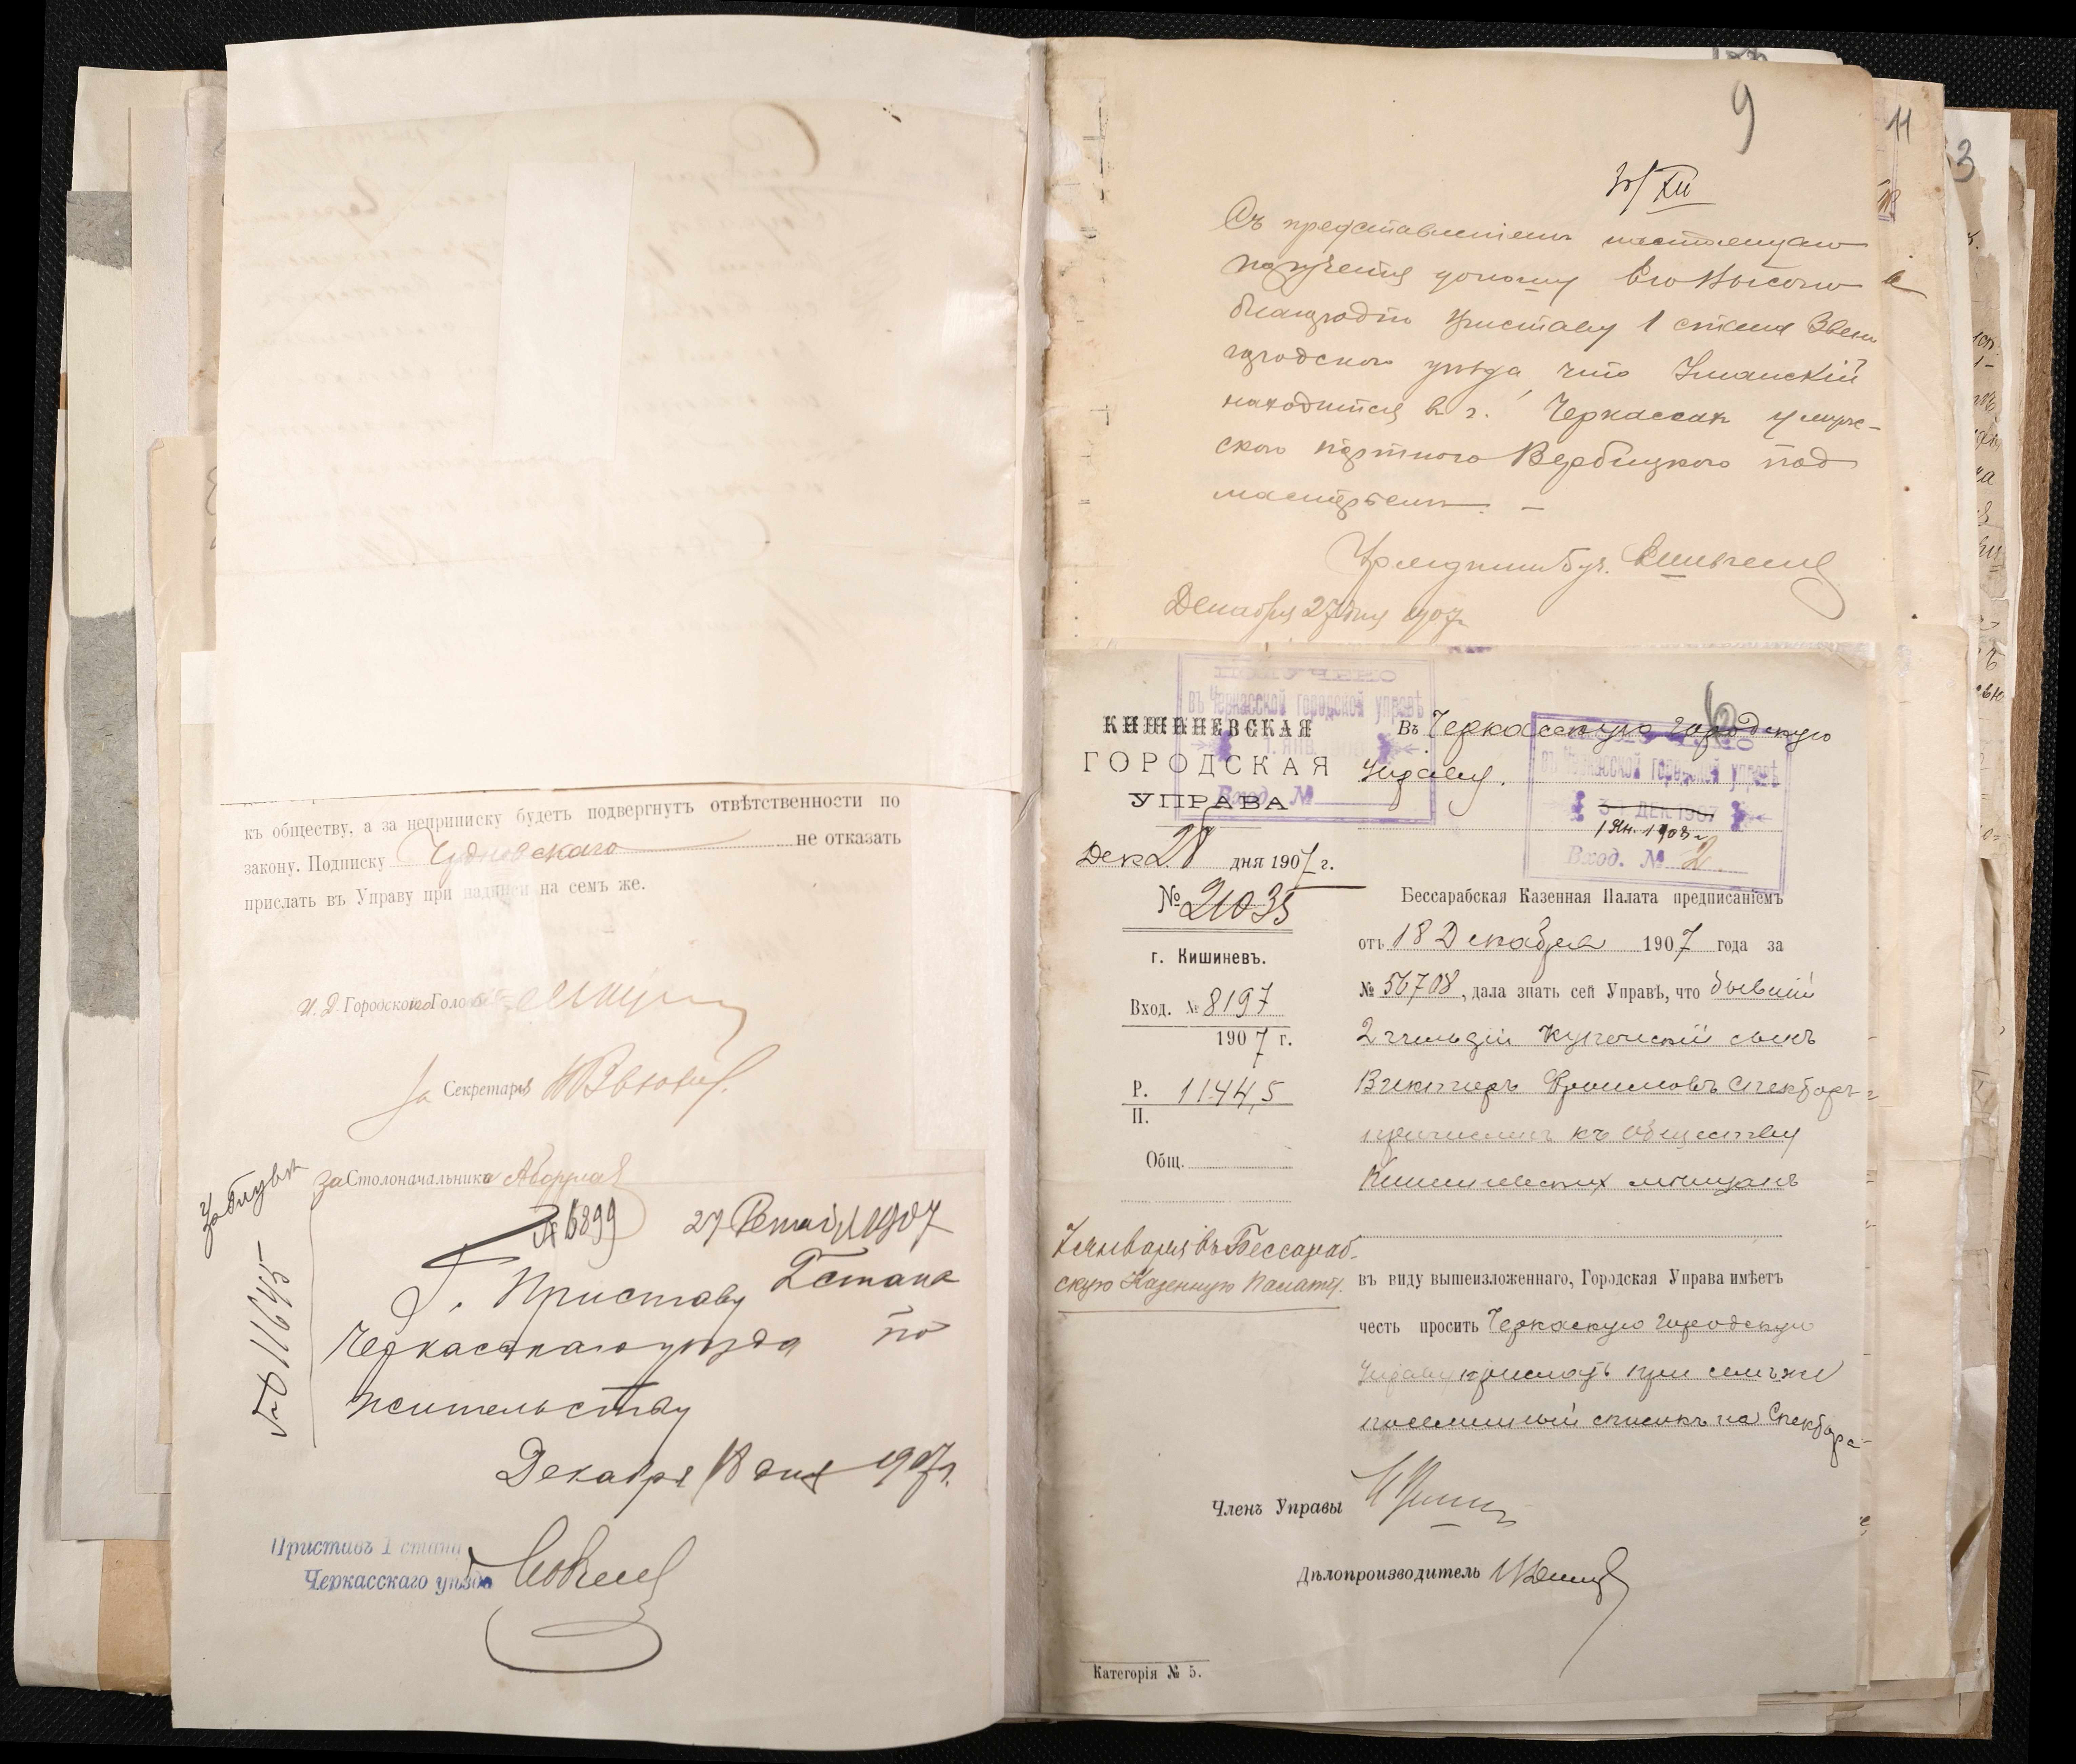 къ обществу, а за неприписку будетъ подвергнутъ отвѣтственности по
закону. Подписку Чудновскаго не отказать
прислать въ Управу при надписи на семъ же.
И. д. Городского Головы
За Секретаря
За Столоначальника
№ 6899
№ 11645
Приставу 2 стана
Черкасскаго уѣзда по
жительству
Декабря 18 дня 1907 г.
Приставъ 1 стана
Черкасскаго уѣзда
9
11
3
30/XII
Съ представленіемъ настоящаго
порученія доношу Его Высоко
благородію Приставу 1 стана Звени
городского уѣзда что Уманскій
находится въ г. Черкассах у мужс-
ского портного Вербицкого под
мастерьемъ. —
Декабря 27 дня 1907 г.
КИШИНЕВСКАЯ
ГОРОДСКАЯ
УПРАВА
Дек. 28 дня 1907 г.
№ 21035
г. Кишиневъ.
Вход. № 8197
1907 г.
Р. 11445
П.
Общ.
7 января въ Бессараб-
скую Казенную Палату.
въ Черкасской городской управѣ
1. ЯНВ. 1908
Вход. №
Въ Черкасскую городскую
Управу.
въ Черкасской городской управѣ
31 ДЕК 1907
1 Ян. 1908 г.
Вход. № 2
Бессарабская Казенная Палата предписаніемъ
отъ 18 Декабря 1907 года за
№ 56708, дала знать сей Управѣ, что бывшій
2 гильдіи купеческій сынъ
Викторъ Фроимовъ Спекторъ
причисленъ къ обществу
Кишиневскихъ мѣщанъ
въ виду вышеизложеннаго, Городская Управа имѣетъ
честь просить Черкаскую городскую
Управу прислать при семъ же
посемейный списокъ на Спектора
Членъ Управы
Дѣлопроизводитель
Категорія № 5.